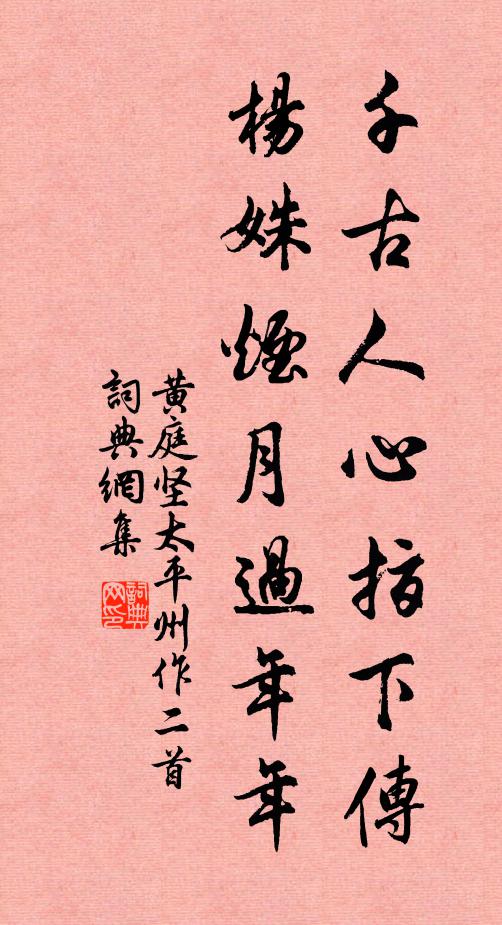 千古人心指下傳
楊姝煙月過年年
黄庭坚太平州作二首
詞典網集
詞典網印